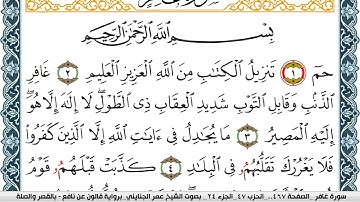 بِسْمِ اللَّهِ الرَّحْمَٰنِ الرَّحِيمِ
حمٓ ١ تَنزِيلُ الْكِتَٰبِ مِنَ اللَّهِ الْعَزِيزِ الْعَلِيمِ ٢ غَافِرِ
الذَّنۢبِ وَقَابِلِ التَّوْبِ شَدِيدِ الْعِقَابِ ذِى الطَّوْلِ لَا إِلَٰهَ إِلَّا هُوَ
إِلَيْهِ الْمَصِيرُ ٣ مَا يُجَٰدِلُ فِى ءَايَٰتِ اللَّهِ إِلَّا الَّذِينَ كَفَرُوا
فَلَا يَغْرُرْكَ تَقَلُّبُهُمْ فِى الْبِلَٰدِ ٤ كَذَّبَتْ قَبْلَهُمْ قَوْمُ
سورة غافر الصفحة ٤٦٧ .. الحزب ٤٧ الجزء ٢٤ . بصوت الشيخ عمر الجنايني برواية قالون عن نافع - بالقصر والصلة